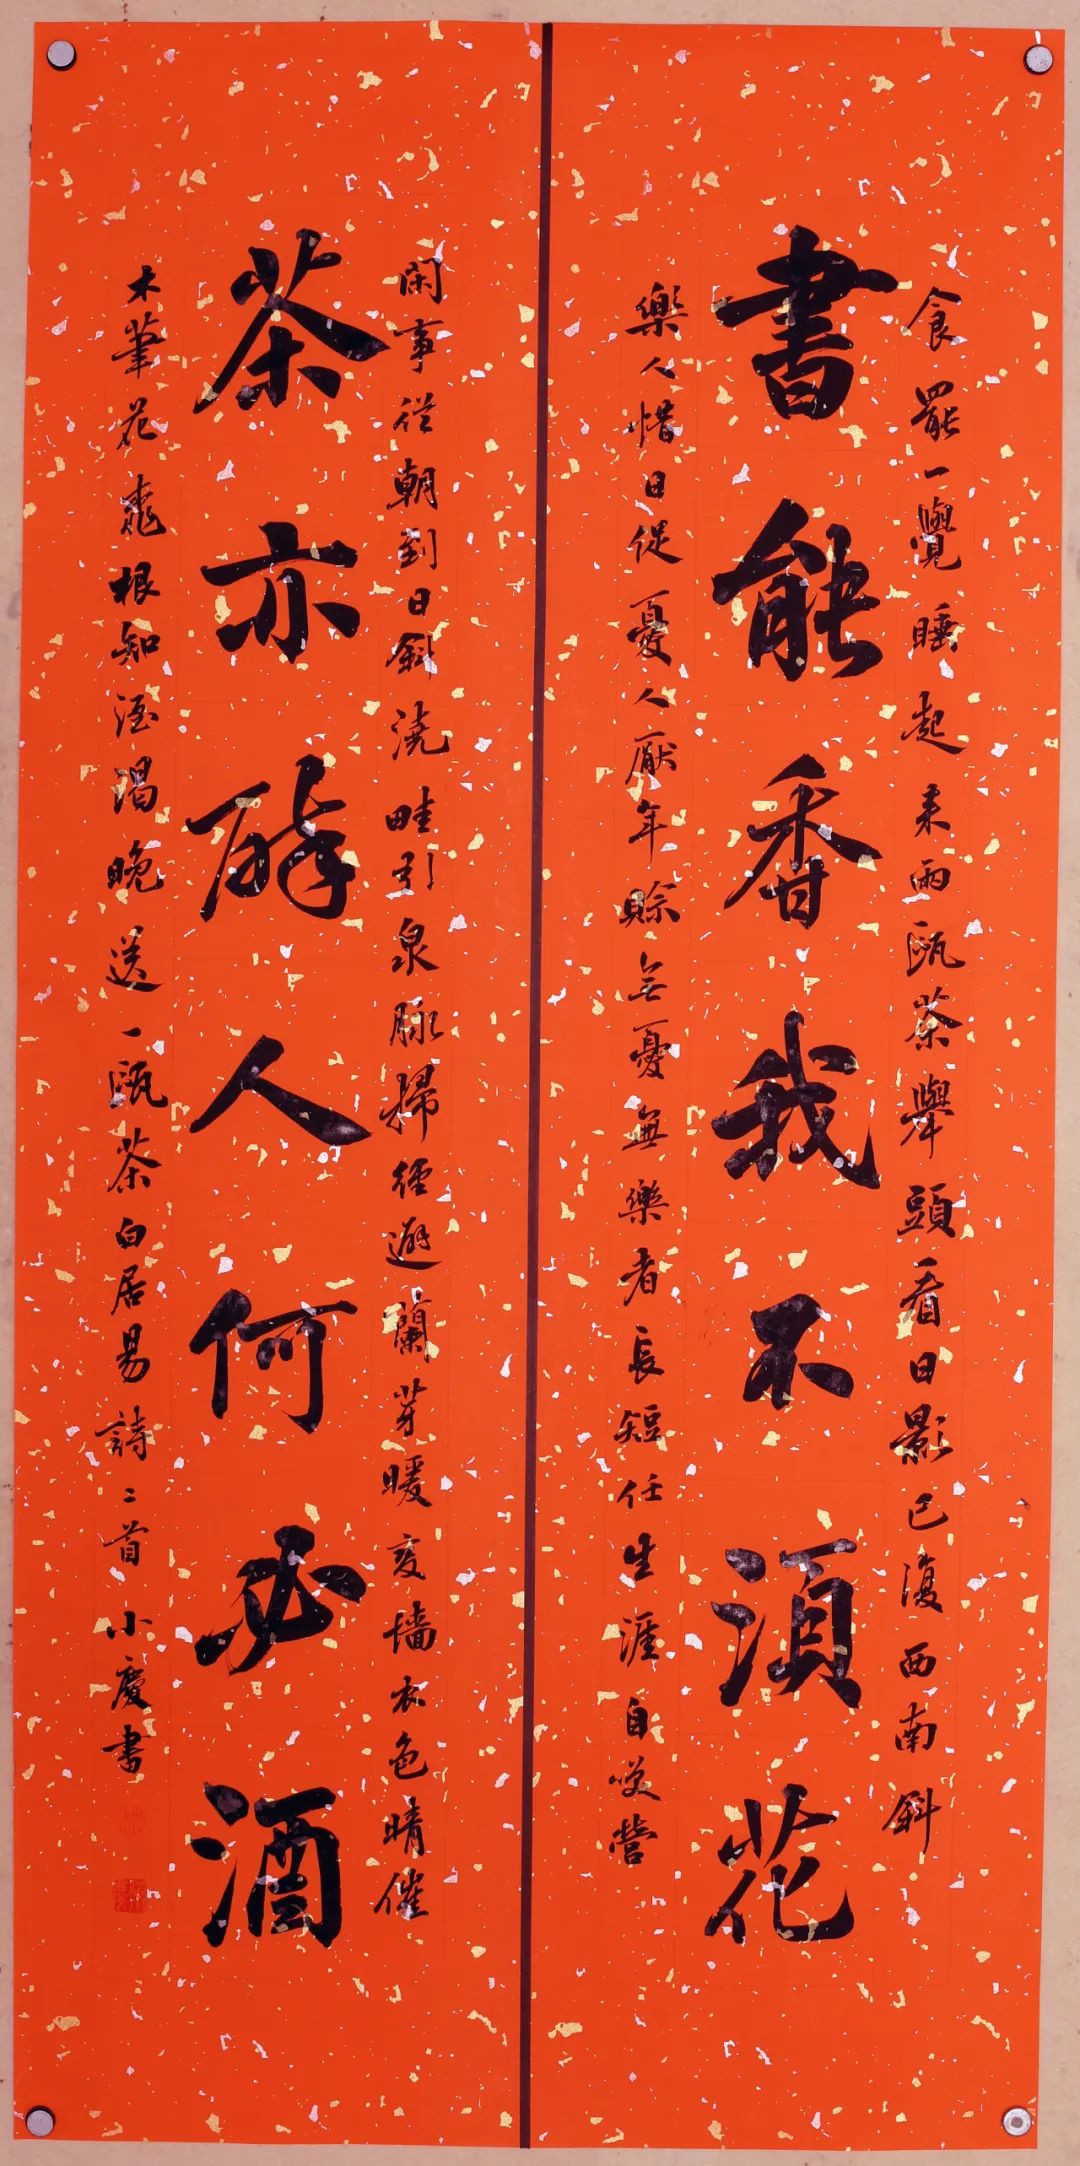 食罷一覺睡起來兩甌茶舉頭看日影已復西南斜
書能香我不須花
樂人惜日促憂人厭年賒無憂無樂者長短任生涯自咲營
閑事從朝到日斜澆畦引泉脉掃徑避蘭芽暖変墻衣色晴催
茶亦醉人何必酒
木筆花桃根知酒渴晚送一甌茶白居易詩二首小慶書